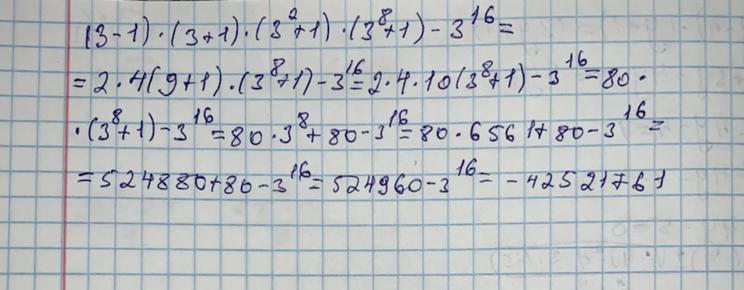 (3-1)·(3+1)·(3²+1)·(3⁸+1)-3¹⁶=
=2·4(9+1)·(3⁸+1)-3¹⁶=2·4·10(3⁸+1)-3¹⁶=80·
·(3⁸+1)-3¹⁶=80·3⁸+80-3¹⁶=80·6561+80-3¹⁶=
=524880+80-3¹⁶=524960-3¹⁶=-42521761